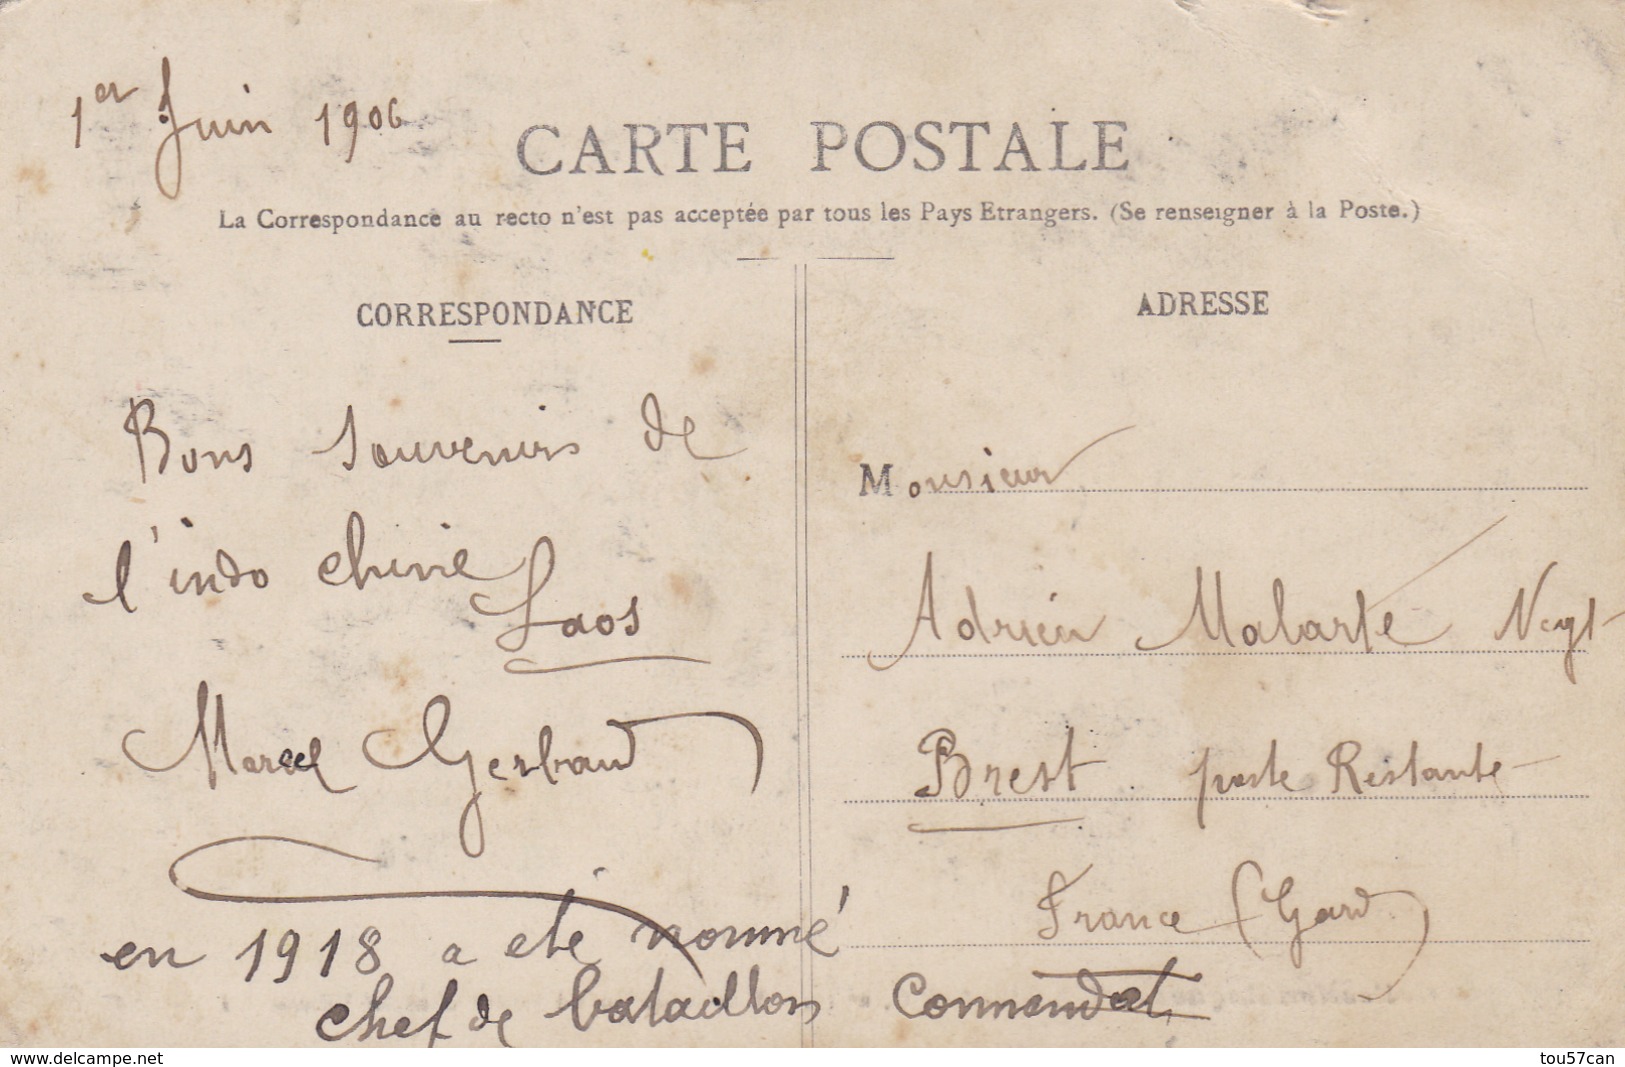 1er Juin 1906
CARTE POSTALE
La Correspondance au recto n'est pas acceptée par tous les Pays Etrangers. (Se renseigner à la Poste.)
CORRESPONDANCE
Bons souvenirs de
l'indo chine
Laos
Marcel Gerbaud
en 1918 a été nommé
chef de bataillon Commandat
ADRESSE
Monsieur
Adrien Malarte Negt
Brest poste Restante
France (Gard)
www.delcampe.net
tou57can